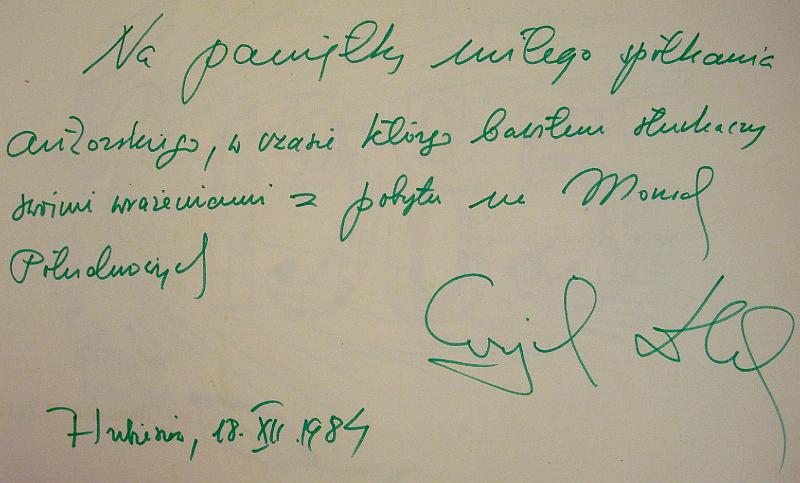 Na pamiątkę miłego spotkania
autorskiego, w czasie którego bawiłem słuchaczy
swimi wrażeniami z pobytu na Morzach
Południowych
Hrubieszów, 18.XII.1984